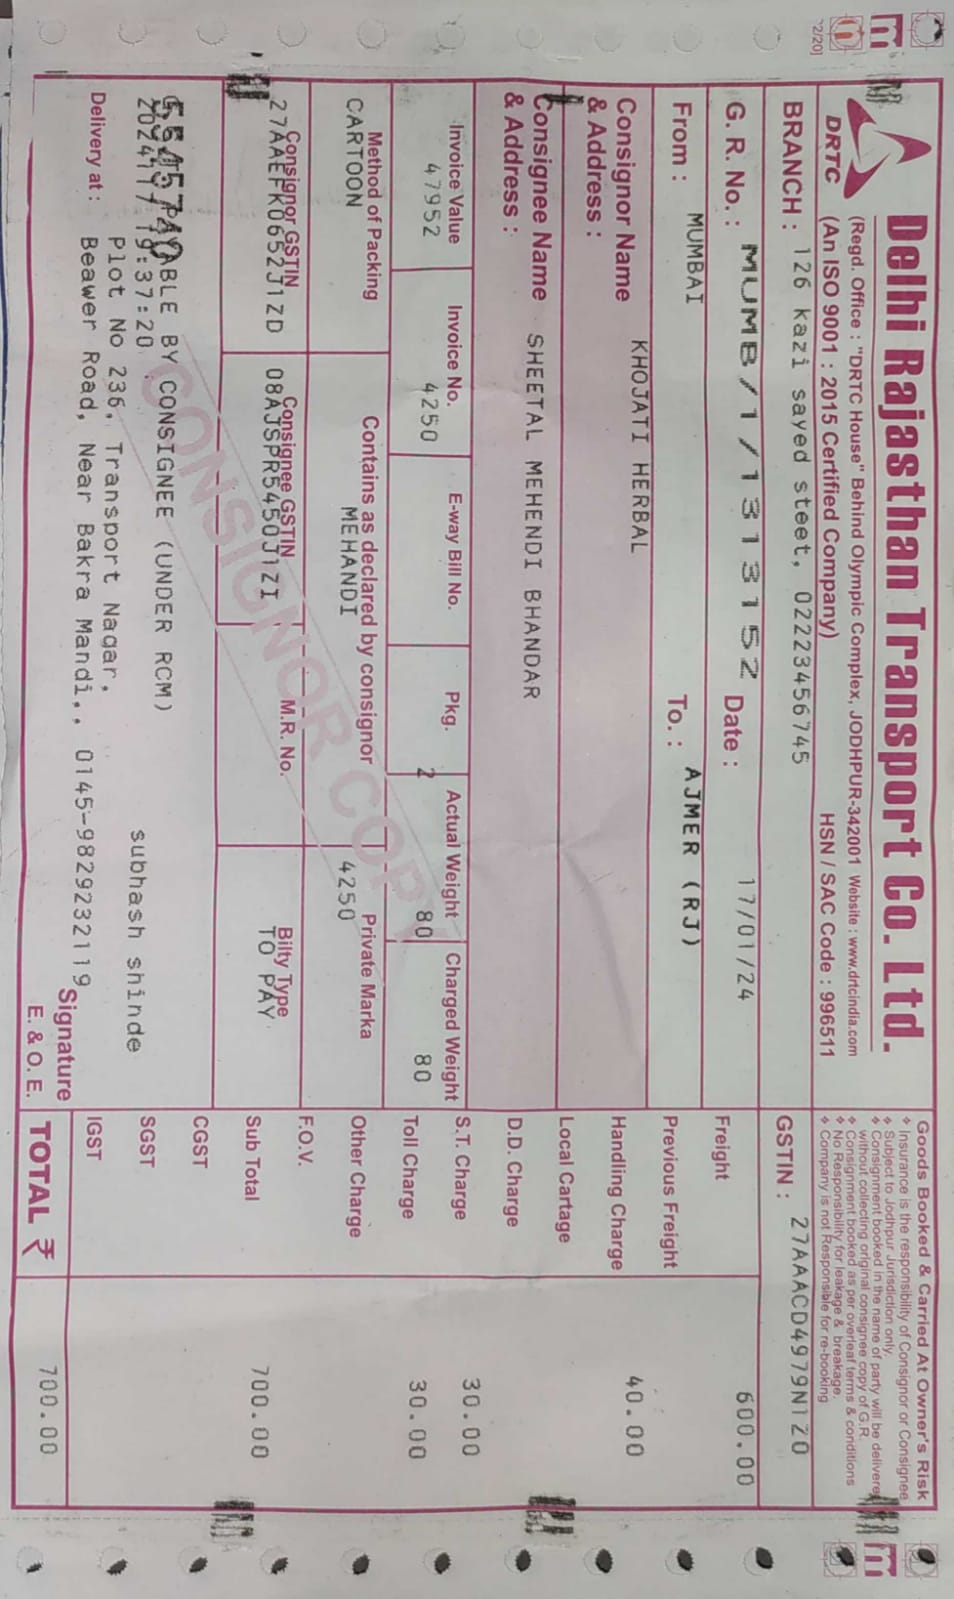 Delhi Rajasthan Transport Co. Ltd.
(Regd. Office : "DRTC House" Behind Olympic Complex, JODHPUR-342001 Website : www.drtcindia.com
DRTC (An ISO 9001 : 2015 Certified Company) HSN / SAC Code : 996511
Goods Booked & Carried At Owner's Risk
❖ Insurance is the responsibility of Consignor or Consignee
❖ Subject to Jodhpur Jurisdiction only.
❖ Consignment booked in the name of party will be delivere
without collecting original consignee copy of G.R.
❖ Consignment booked as per overleaf terms & conditions
❖ No Responsibility for leakage & breakage.
❖ Company is not Responsible for re-booking
BRANCH : 126 kazi sayed steet, 02223456745
GSTIN : 27AAACD4979N1Z0
G. R. No. : MUMB/1/1313152 Date : 17/01/24
Freight 600.00
From : MUMBAI To. : AJMER (RJ)
Previous Freight
Consignor Name KHOJATI HERBAL
& Address :
Handling Charge 40.00
Local Cartage
Consignee Name SHEETAL MEHENDI BHANDAR
& Address :
D.D. Charge
Invoice Value Invoice No. E-way Bill No. Pkg. Actual Weight Charged Weight
47952 4250 2 80 80
S.T. Charge 30.00
Toll Charge 30.00
Method of Packing Contains as declared by consignor Private Marka
CARTOON MEHANDI 4250
Other Charge
F.O.V.
Consignor GSTIN Consignee GSTIN M.R. No. Bilty Type
27AAEFK0652J1ZD 08AJSPR5450J1ZI TO PAY
Sub Total 700.00
CONSIGNOR COPY
PAYABLE BY CONSIGNEE (UNDER RCM)
CGST
19:37:20 subhash shinde
SGST
Delivery at : Plot No 236, Transport Nagar,
Beawer Road, Near Bakra Mandi,, 0145-9829232119
IGST
Signature
E. & O. E.
TOTAL ₹ 700.00